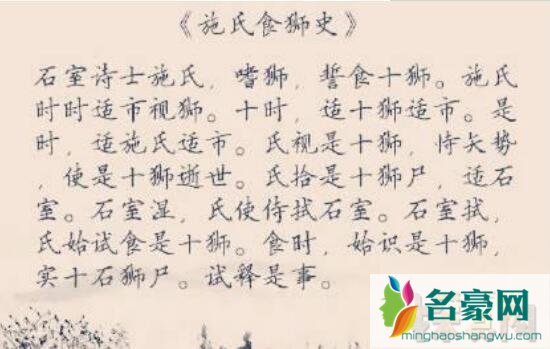 《施氏食狮史》
石室诗士施氏，嗜狮，誓食十狮。施氏
时时适市视狮。十时，适十狮适市。是
时，适施氏适市。氏视是十狮，恃矢势
，使是十狮逝世。氏拾是十狮尸，适石
室。石室湿，氏使侍拭石室。石室拭，
氏始试食是十狮。食时，始识是十狮，
实十石狮尸。试释是事。
名豪网
minghaoshangwu.com